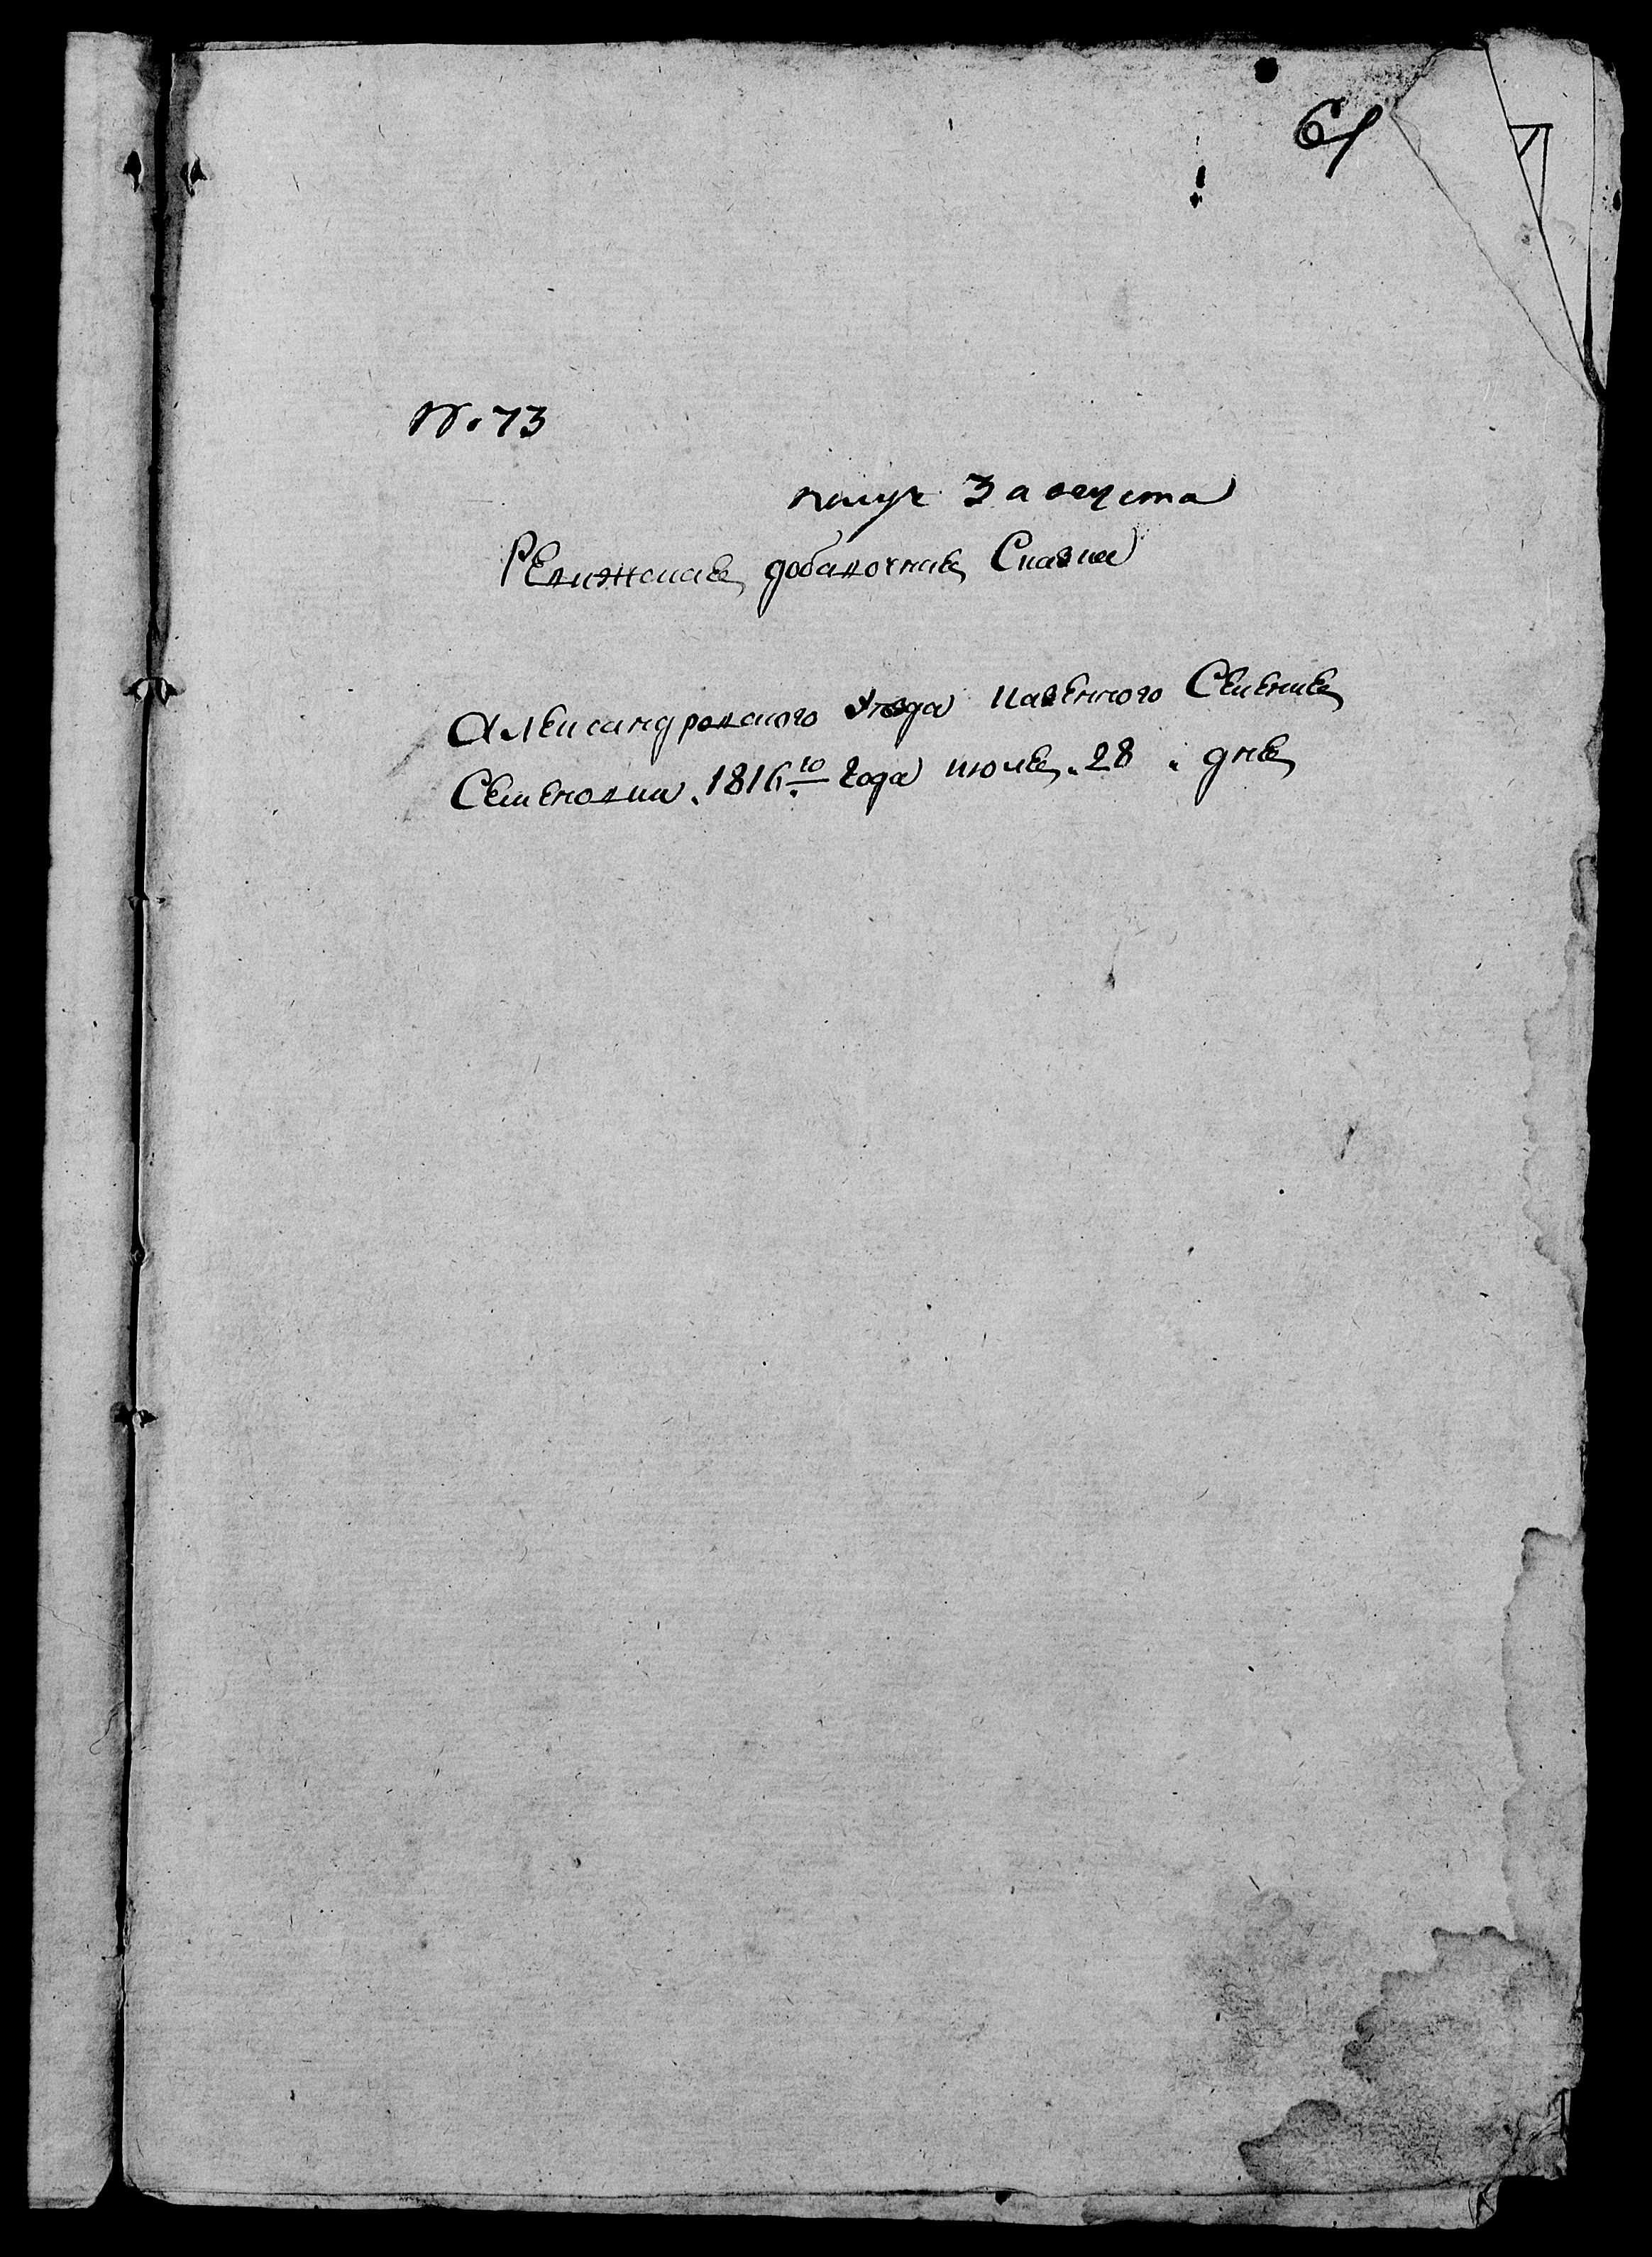 61
№ 73
получ 3 августа
Ревижская добавочная Сказка
Александровского уезда казенного Селения
Семеновки. 1816го года июля. 28. дня